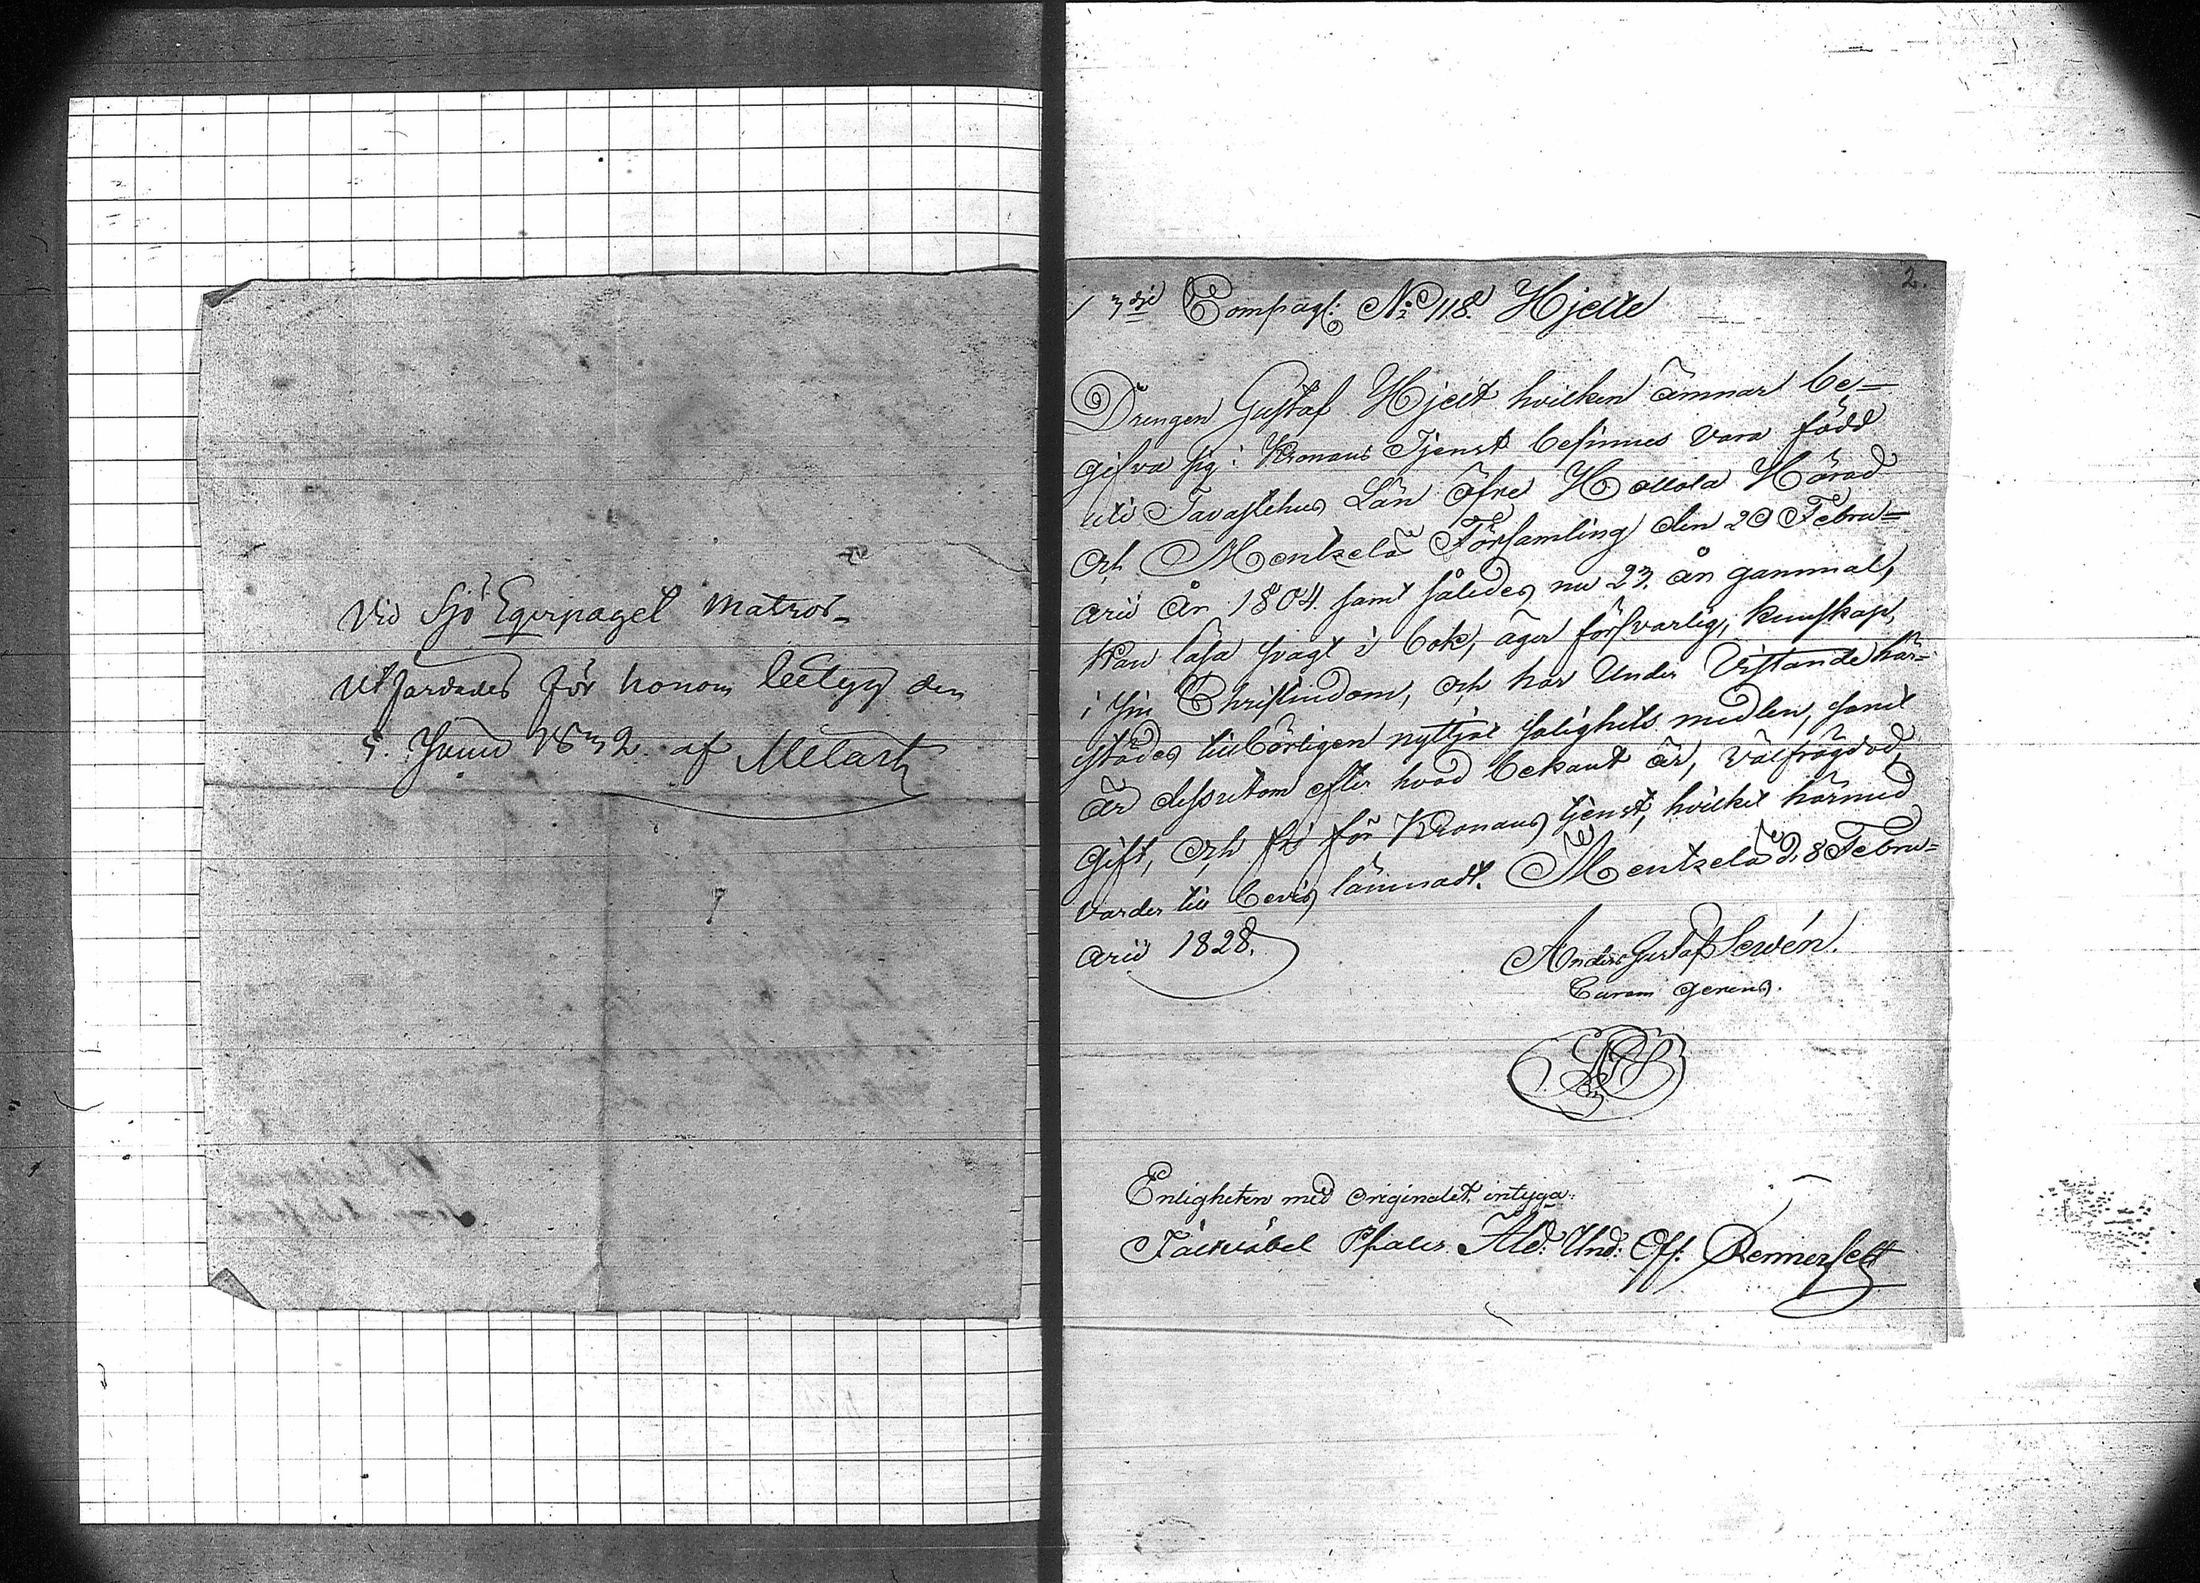 Vid Sjö Equipaget Matros-
Utfärdades för honom betyg den
5. Junii 1832. af Melart
2.
3dje Compagt: No 118. Hjelte
Drengen Gustaf Hjelt hvilken ämnar be=
gifva sig i Kronans Tjenst befinnes vara född
uti Tavastehus Län öfre Hollola Härad
och Mentzelä Församling den 20 Febru=
arii År 1804. samt således nu 23. år gammal,
kan läsa svagt i bok, äger försvarlig kunskap,
i sin Christendom, och har under vistande här=
städes tillbörligen nyttjat salighets medlen, samt
är dessutom efter hvad bekant är, välfrägdad,
gift, och fri för Kronans tjenst, hvilket härmed
varder till bevis lämnadt. Mentzelä d. 8 Febru=
arii 1828.
Anders Gustaf Servén.
Curam gerens.
Enligheten med originalet, intyga:
Fält Und: Off. Rennerfelt